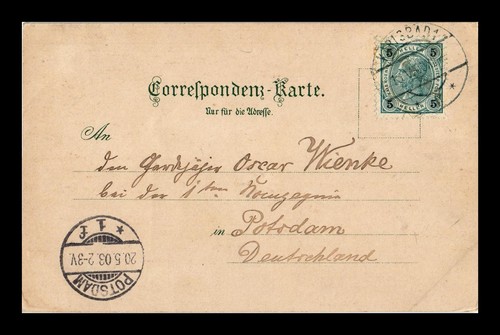 KARLSBAD 1
5 5
HELLER
5 5
Correspondenz-Karte.
Nur für die Adresse.
An
den Gardejäger Oscar Wienke
bei der 1ten Kompagnie
in Potsdam
Deutschland
* 1 f
20.5.03.2-3V.
POTSDAM